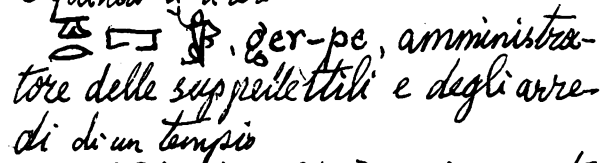 , ger-pe, amministra-
tore delle suppellettili e degli arre-
di di un tempio